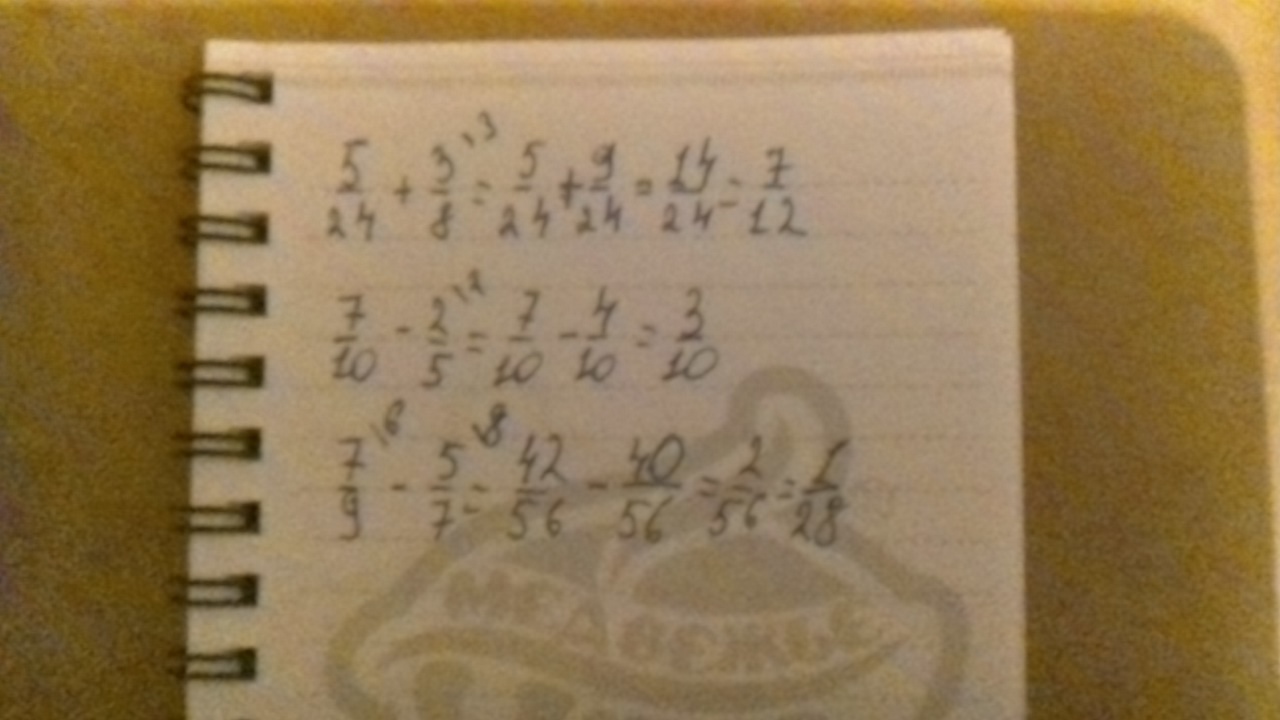 5/24 + 3/8 ·3 = 5/24 + 9/24 = 14/24 = 7/12
7/10 - 2/5 ·2 = 7/10 - 4/10 = 3/10
7/9 ·6 - 5/7 ·8 = 42/56 - 40/56 = 2/56 = 1/28
МЕДВЕЖЬЕ